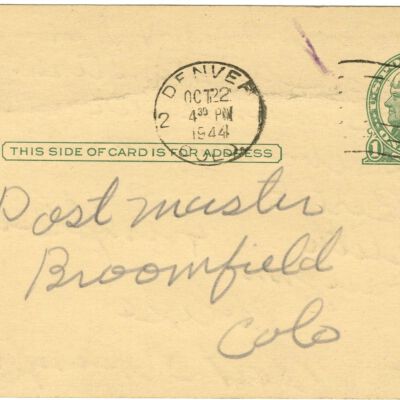 DENVER
OCT 22
4 30 PM
1944
2
COLO.
THIS SIDE OF CARD IS FOR ADDRESS
Postmaster
Broomfield
Colo